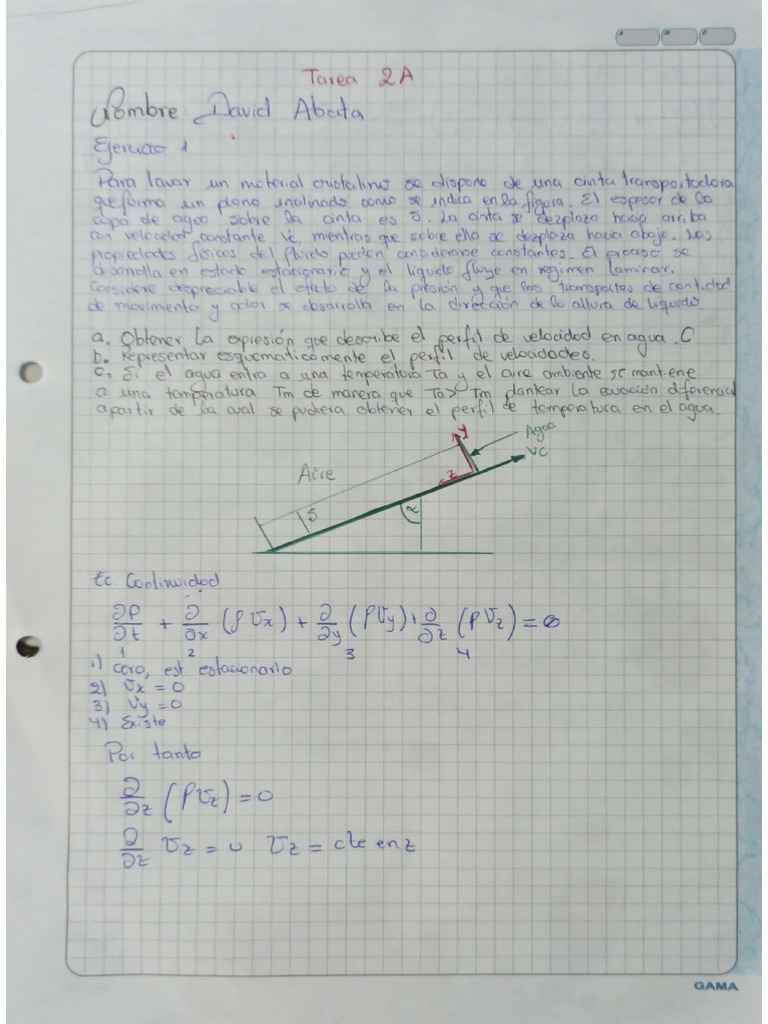 A M D
Tarea 2A
Nombre: David Abata
Ejercicio 1
Para lavar un material cristalino se dispone de una cinta transportadora
que forma un plano inclinado como se indica en la figura. El espesor de la
capa de agua sobre la cinta es δ. La cinta se desplaza hacia arriba
con velocidad constante Vc, mientras que sobre ella se desplaza hacia abajo. Las
propiedades físicas del fluido pueden considerarse constantes. El proceso se
desarrolla en estado estacionario y el líquido fluye en regimen laminar.
Considere despreciable el efecto de la presión y que los transportes de cantidad
de movimiento y calor se desarrolla en la dirección de la altura de líquido.
a. Obtener la expresión que describe el perfil de velocidad en agua. C
b. Representar esquematicamente el perfil de velocidades.
c. Si el agua entra a una temperatura Ta y el aire ambiente se mantiene
a una temperatura Tm de manera que Ta > Tm plantear la ecuación diferencial
apartir de la cual se pudiera obtener el perfil de temperatura en el agua.
y Agua
Vc
Aire z
δ α
Ec. Continuidad
∂ρ/∂t + ∂/∂x (ρVx) + ∂/∂y (ρVy) + ∂/∂z (ρVz) = 0
1 2 3 4
1) cero, est. estacionario
2) Vx = 0
3) Vy = 0
4) Existe
Por tanto
∂/∂z (ρVz) = 0
∂/∂z Vz = 0 Vz = cte en z
GAMA